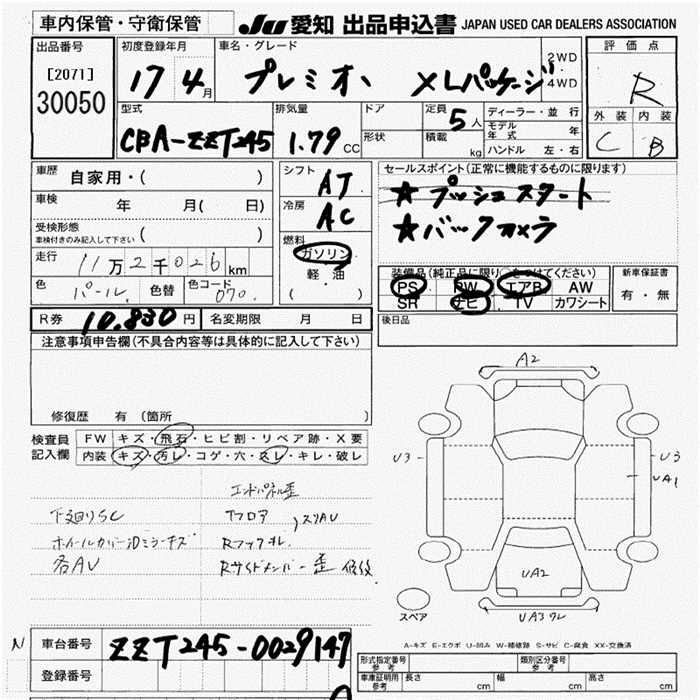 車内保管・守衛保管 JU 愛知 出品申込書 JAPAN USED CAR DEALERS ASSOCIATION
出品番号 初度登録年月 車名・グレード 2WD 評価点
[2071] 17 4月 プレミオ、 XLパッケージ 4WD R
30050 外装 内装
型式 排気量 ドア 定員 5人 ディーラー・並行 C B
CBA-ZZT245 1.79CC 形状 積載 kg モデル年式 年
ハンドル 左・右
車歴 自家用・( ) シフト AT セールスポイント(正常に機能するものに限ります)
車検 年 月( 日) 冷房 AC ★プッシュスタート
受検形態 ( ) ★バックカメラ
車検付きのみ記入して下さい
燃料 ガソリン
走行 11万2千026km 軽・油
装備品(純正品に限り○をつけてください) 新車保証書
色 パール. 色替 色コード 070. ( ) PS PW エアB AW 有・無
SR ナビ TV カワシート
R券 10.830円 名変期限 月 日 後日品
注意事項申告欄(不具合内容等は具体的に記入して下さい)
修復歴 有 (箇所
検査員 FW キズ・飛石・ヒビ割・リペア跡・X要
記入欄 内装 キズ・汚レ・コゲ・穴・スレ・キレ・破レ
A2
U3 U3
UA1
エンドパネル歪
下廻りSC Tフロア スリAV
ホイールカバー Rフック
各AV Rサイドメンバー 歪 修復
UA2
スペア UA3
A-キズ E-エクボ U-凹み W-補修跡 S-サビ C-腐食 XX-交換済
N 車台番号 ZZT245-0029147
登録番号
形式指定番号 参考 類別区分番号 参考
車庫証明用 参考 長さ cm 幅 cm 高さ cm